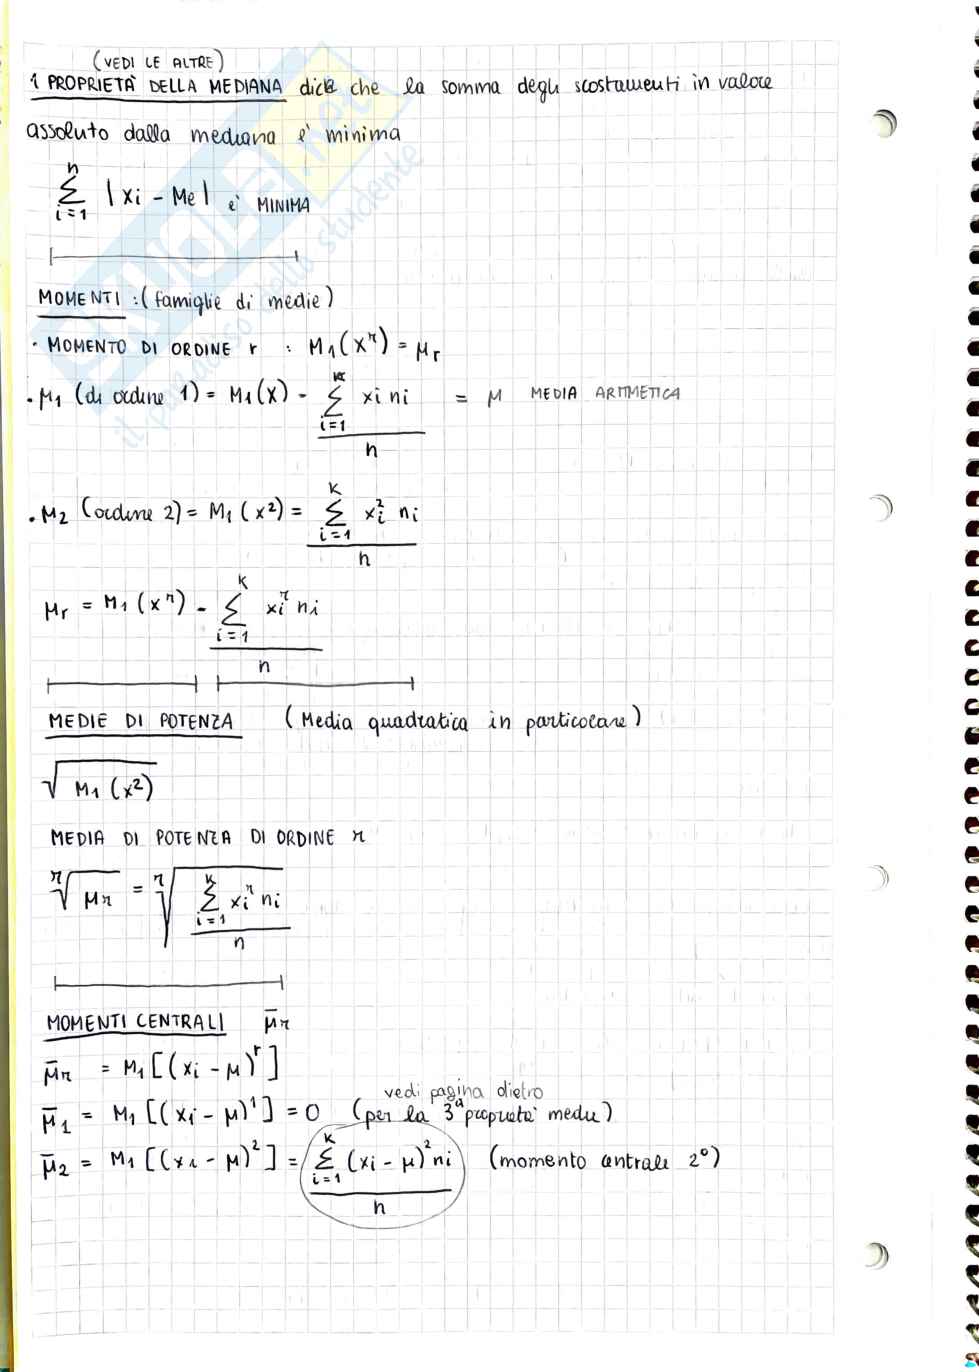 (VEDI LE ALTRE)
1 PROPRIETÀ DELLA MEDIANA dice che la somma degli scostamenti in valore
assoluto dalla mediana è minima
n
∑ |xi - Me| è MINIMA
i=1
MOMENTI : (famiglie di medie)
· MOMENTO DI ORDINE r : M1(X^r) = μr
· μ1 (di ordine 1) = M1(X) - ∑_{i=1}^{k} xi ni / n = μ MEDIA ARITMETICA
· μ2 (ordine 2) = M1(x²) = ∑_{i=1}^{K} xi² ni / n
μr = M1(x^r) - ∑_{i=1}^{K} xi^r ni / n
MEDIE DI POTENZA (Media quadratica in particolare)
√(M1(x²))
MEDIA DI POTENZA DI ORDINE r
r√(μr) = r√(∑_{i=1}^{K} xi^r ni / n)
MOMENTI CENTRALI μ̄r
μ̄r = M1[(xi - μ)^r]
vedi pagina dietro
μ̄1 = M1[(xi - μ)^1] = 0 (per la 3ª proprietà media)
μ̄2 = M1[(xi - μ)²] = ∑_{i=1}^{K} (xi - μ)² ni / n (momento centrale 2°)
SKUOLA.net
il paradiso dello studente